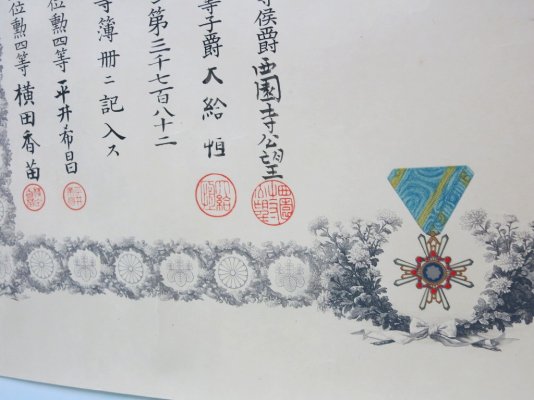 等侯爵西園寺公望
等子爵大給恒
第三千七百八十二
等簿冊ニ記入ス
位勲四等平井希昌
位勲四等横田香苗